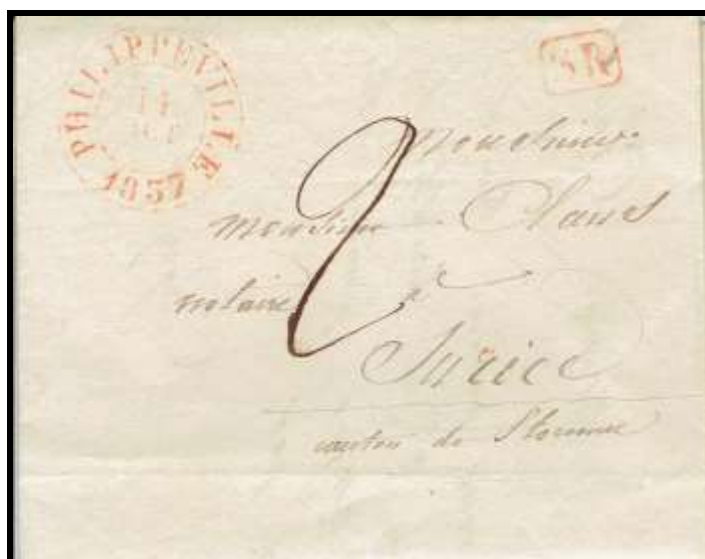 PHILIPPEVILLE
14
1837
SR
Monsieur
Monsieur
notaire
2
à
Surice
canton de Florenne